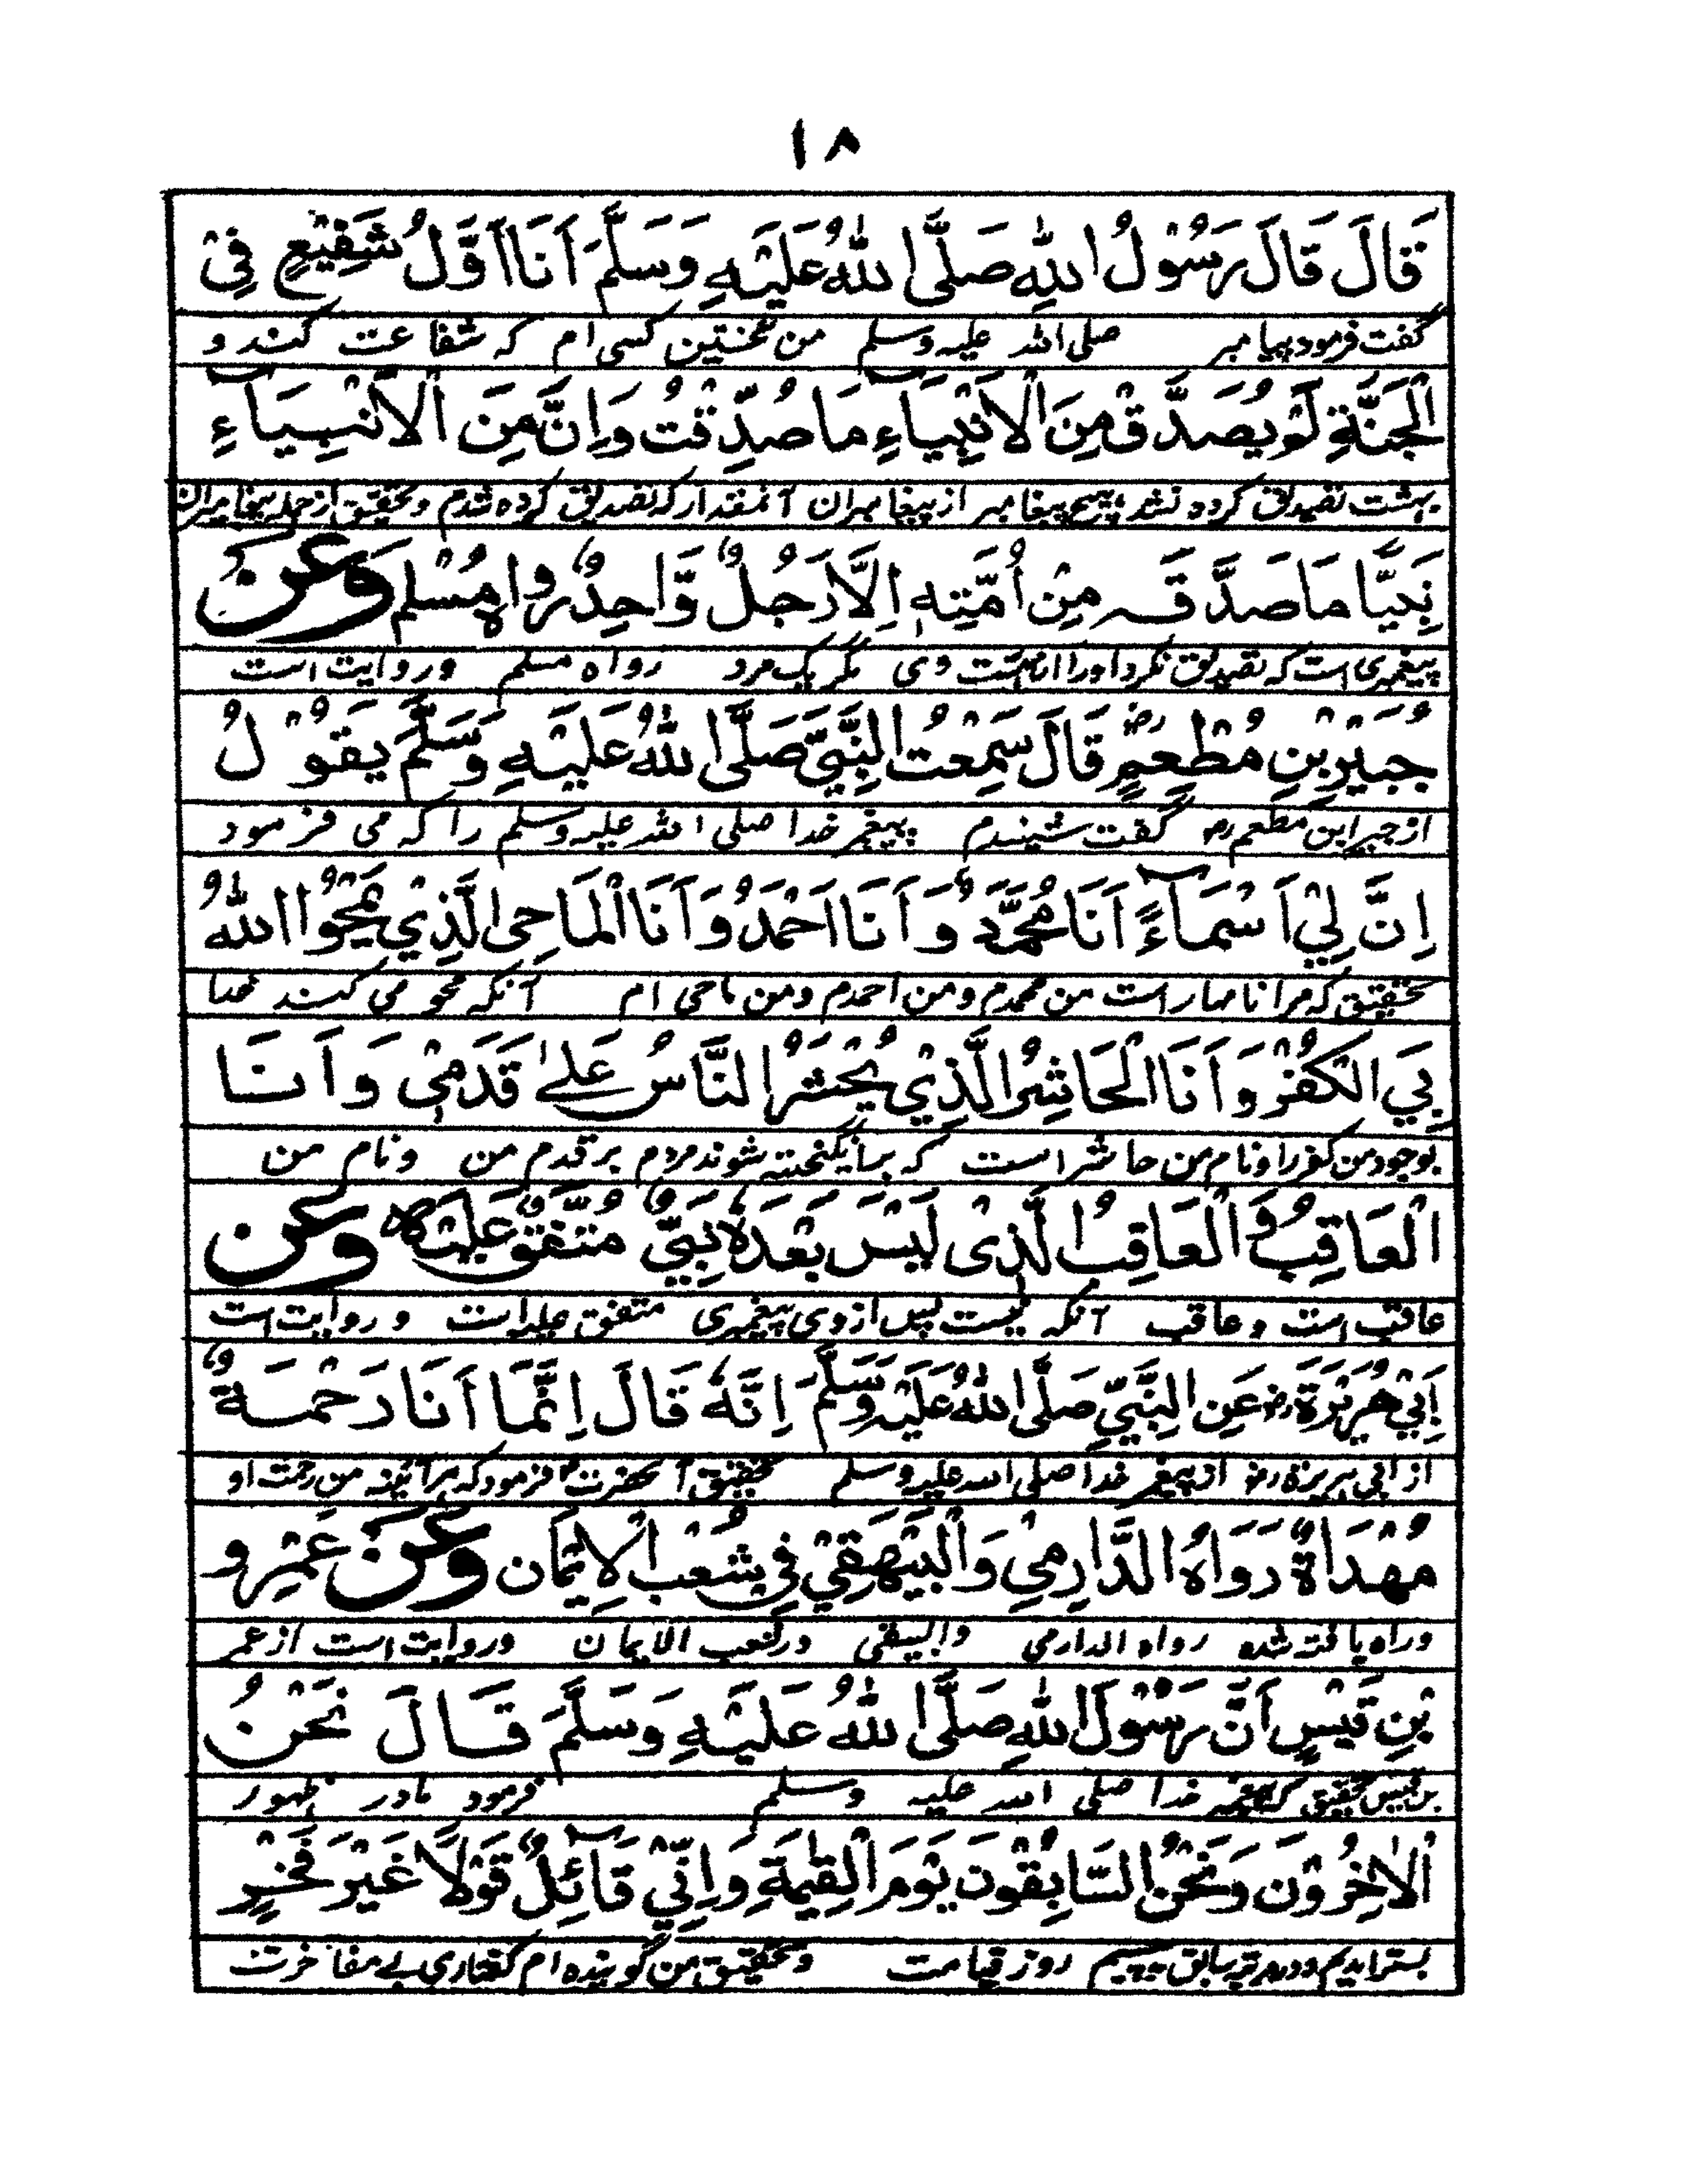 ١٨
قَالَ قَالَ رَسُوْلُ اللهِ صَلَّى اللهُ عَلَيْهِ وَسَلَّمَ اَنَا اَوَّلُ شَفِيْعٍ فِي
گفت فرمود پیامبر صلی الله علیه وسلم من نخستین کسی ام که شفاعت کند و
الْجَنَّةِ لَوْ يُصَدَّقْ مِنَ الْاَنْبِيَآءِ مَا صُدِّقْتُ وَاِنَّ مِنَ الْاَنْبِيَآءِ
بهشت تصدیق کرده نشد هیچ پیغامبر از پیغامبران آنمقدار که تصدیق کرده شدم و تحقیق از جمله پیغامبران
نَبِيًّا مَا صَدَّقَه مِنْ اُمَّتِهٖ اِلَّا رَجُلٌ وَّاحِدٌ رواه مُسْلم وَعَنْ
پیغمبری است که تصدیق نکرد او را از امت وی مگر یک مرد رواه مسلم و روایت است
جُبَيْرِ بْنِ مُطْعِمٍ رض قَالَ سَمِعْتُ النَّبِيَّ صَلَّى اللهُ عَلَيْهِ وَسَلَّمَ يَقُوْلُ
از جبیر ابن مطعم رض گفت شنیدم پیغمبر خدا صلی الله علیه وسلم را که می فرمود
اِنَّ لِيْ اَسْمَآءً اَنَا مُحَمَّدٌ وَ اَنَا اَحْمَدُ وَ اَنَا الْمَاحِی الَّذِيْ يَمْحُوْا اللهُ
تحقیق که مرا نامها راست من محمدم و من احمدم و من ماحی ام آنکه محو می کند خدا
بِيَ الْكُفْرَ وَ اَنَا الْحَاشِرُ الَّذِيْ يُحْشَرُ النَّاسُ عَلٰى قَدَمِيْ وَ اَنَا
بوجود من کفر را و نام من حاشر است که برانگیخته شوند مردم بر قدم من و نام من
الْعَاقِبُ وَ الْعَاقِبُ الَّذِى لَيْسَ بَعْدَهٗ نَبِيٌّ مُتَّفَقٌ عَلَيْهِ وَعَنْ
عاقب است و عاقب آنکه نیست پس از وی پیغمبری متفق علیه است و روایت است
اَبِيْ هُرَيْرَةَ رض عَنِ النَّبِيِّ صَلَّى اللهُ عَلَيْهِ وَسَلَّمَ اِنَّهٗ قَالَ اِنَّمَا اَنَا رَحْمَةٌ
از ابی هریره رض از پیغمبر خدا صلی الله علیه وسلم تحقیق آنحضرت فرمود که هر آئینه من رحمت او
مُهْدَاةٌ رَوَاهُ الدَّارِمِي وَالْبَيْهَقِيْ فِي شُعَبِ الْاِيْمَان وَعَنْ عَمْرِو
و راه یافته شده رواه الدارمی والبیهقی در شعب الایمان و روایت است از عمر
بْنِ قَيْسٍ اَنَّ رَسُوْلَ اللهِ صَلَّى اللهُ عَلَيْهِ وَسَلَّمَ قَالَ نَحْنُ
بن قیس تحقیق که پیغمبر خدا صلی الله علیه وسلم فرمود ما در ظهور
الْاٰخِرُوْنَ وَ نَحْنُ السَّابِقُوْنَ يَوْمَ الْقِيٰمَةِ وَ اِنِّيْ قَآئِلٌ قَوْلًا غَيْرَ فَخْرٍ
سابق روز قیامت و تحقیق من گوینده ام گفتاری بے مفاخرت